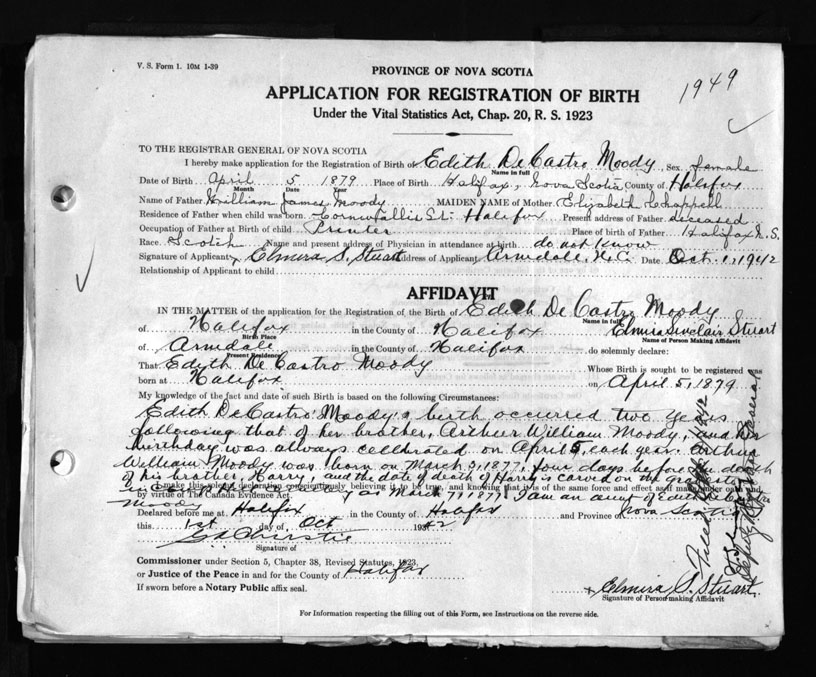 V. S. Form 1. 10M 1-39
1949
PROVINCE OF NOVA SCOTIA
APPLICATION FOR REGISTRATION OF BIRTH
Under the Vital Statistics Act, Chap. 20, R. S. 1923
TO THE REGISTRAR GENERAL OF NOVA SCOTIA
I hereby make application for the Registration of Birth of Edith DeCastro Moody Sex female
Name in full
Date of Birth April 5 1879 Place of Birth Halifax, Nova Scotia County of Halifax
Month Date Year
Name of Father William James Moody MAIDEN NAME of Mother Elizabeth Chappell
Residence of Father when child was born Cornwallis St. Halifax Present address of Father deceased
Occupation of Father at Birth of child Printer Place of birth of Father Halifax N.S.
Race Scotch Name and present address of Physician in attendance at birth do not know
Signature of Applicant Elmira S. Stuart Address of Applicant Armdale, Date Oct. 1, 1942
Relationship of Applicant to child
AFFIDAVIT
IN THE MATTER of the application for the Registration of the Birth of Edith DeCastro Moody
Name in full
of Halifax in the County of Halifax Elmira Sinclair Stuart
Birth Place Name of Person Making Affidavit
of Armdale in the County of Halifax do solemnly declare:
Present Residence
That Edith DeCastro Moody Whose Birth is sought to be registered was
born at Halifax on April 5, 1879
My knowledge of the fact and date of such Birth is based on the following Circumstances:
Edith DeCastro Moody's birth occurred two years
following that of her brother, Arthur William Moody, and her
birthday was always celebrated on April 5, each year. Arthur
William Moody was born on March 3, 1877, four days before the death
of his brother, Harry, and the date of death of Harry is carved on the
make this solemn declaration conscientiously believing it to be true, and knowing that it is of the same force and effect as if made under oath and
as March 7, 1877. I am an aunt of Edith De Castro
by virtue of The Canada Evidence Act.
Moody
Declared before me at Halifax in the County of Halifax and Province of Nova Scotia
this 1st day of Oct 1942
Signature of
Commissioner under Section 5, Chapter 38, Revised Statutes, 1923.
or Justice of the Peace in and for the County of Halifax
If sworn before a Notary Public affix seal.
Elmira S. Stuart
Signature of Person making Affidavit
For Information respecting the filling out of this Form, see Instructions on the reverse side.